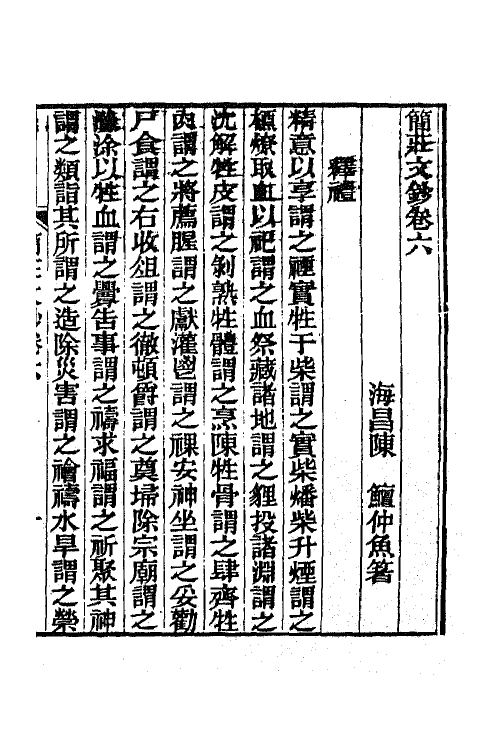 簡莊文鈔卷六
海昌陳　鱣仲魚箸
釋禮
精意以享謂之禋實牲于柴謂之實柴燔柴升煙謂之
槱燎取血以祀謂之血祭藏諸地謂之貍投諸淵謂之
沈解牲皮謂之剝熟牲體謂之烹陳牲骨謂之肆齊牲
肉謂之將薦腥謂之獻灌鬯謂之祼安神坐謂之妥勸
尸食謂之右收俎謂之徹頓爵謂之奠埽除宗廟謂之
涂以牲血謂之釁告事謂之禱求福謂之祈聚其神
謂之類詣其所謂之造除災害謂之禬禱水旱謂之禜